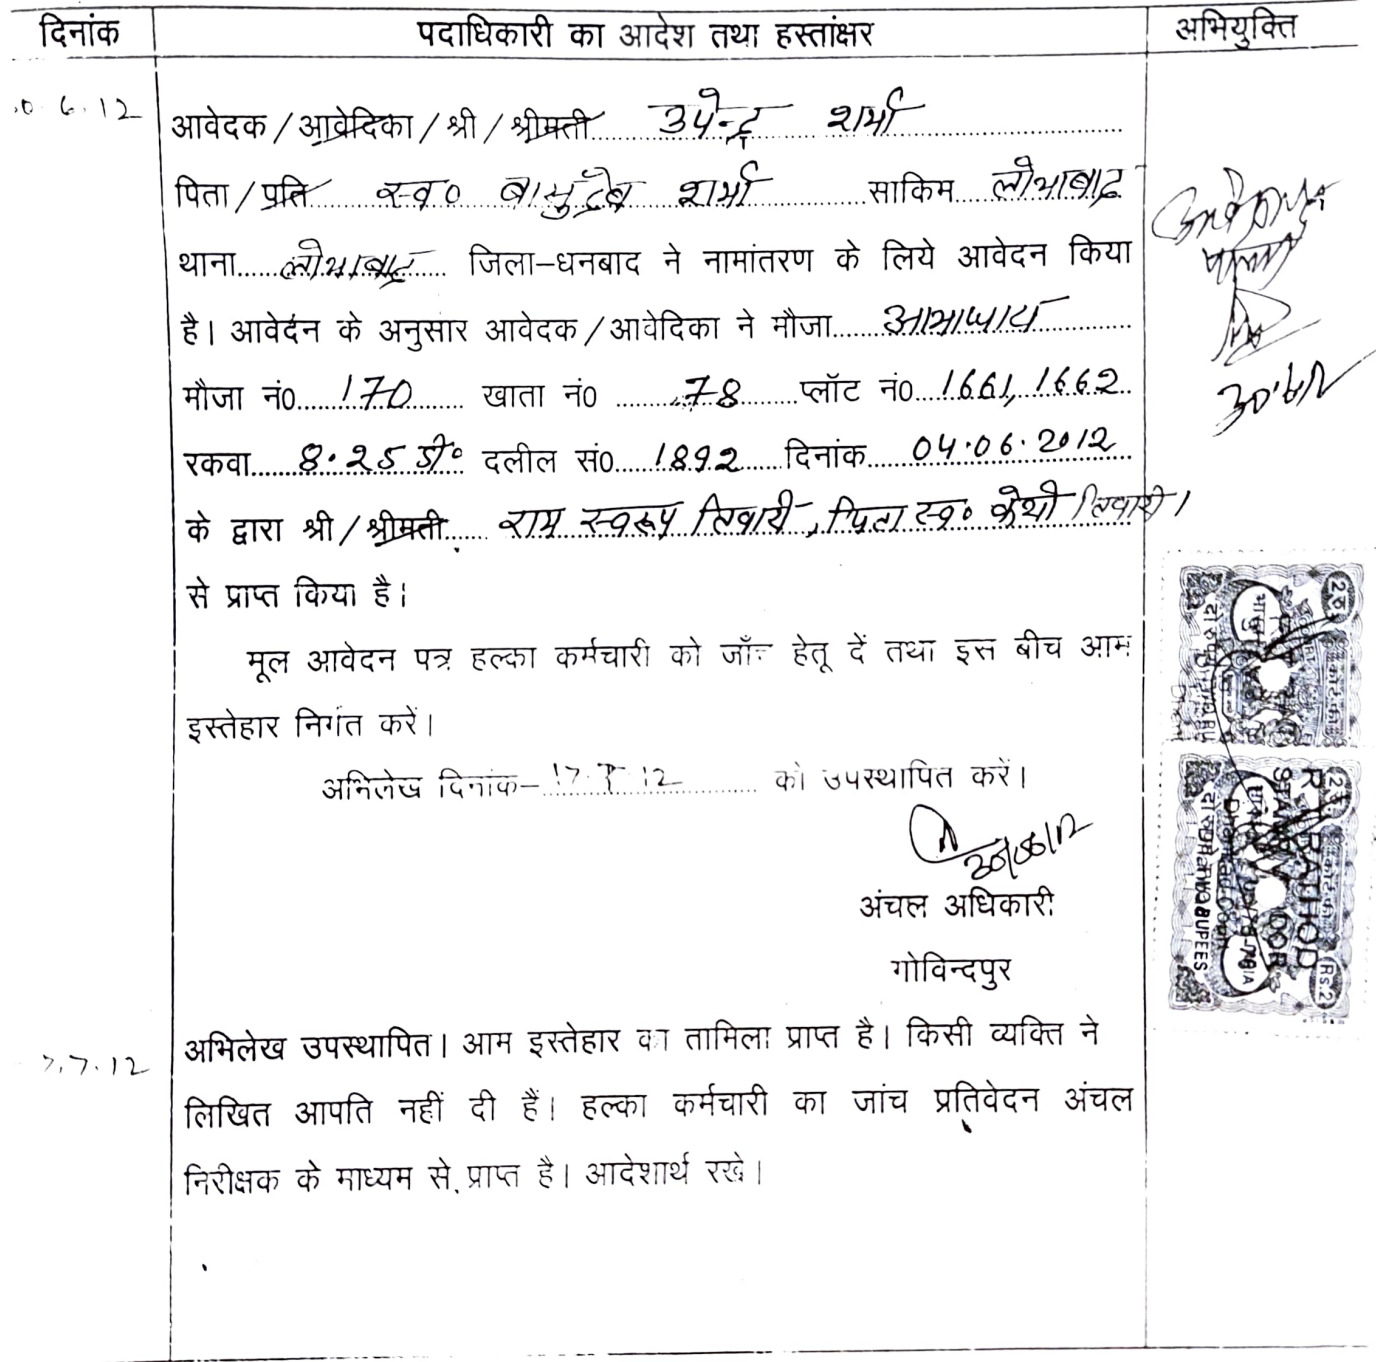 दिनांक पदाधिकारी का आदेश तथा हस्तांक्षर अभियुक्ति
0.6.12
आवेदक / आवेदिका / श्री / श्रीमती उपेन्द्र शर्मा
पिता / प्रति स्व० बासुदेब शर्मा साकिम लोयाबाद
थाना लोयाबाद जिला-धनबाद ने नामांतरण के लिये आवेदन किया
है। आवेदन के अनुसार आवेदक / आवेदिका ने मौजा
मौजा नं0 170 खाता नं0 78 प्लॉट नं0 1661, 1662
रकवा 8.25 डी० दलील सं0 1892 दिनांक 04.06.2012
के द्वारा श्री / श्रीमती राम स्वरूप तिवारी, पिता स्व० तिवारी।
से प्राप्त किया है।
मूल आवेदन पत्र हल्का कर्मचारी को जाँच हेतू दें तथा इस बीच आम
इस्तेहार निर्गत करें।
अभिलेख दिनांक- 17.7.12 को उपस्थापित करें।
30/06/12
अंचल अधिकारी
गोविन्दपुर
7.7.12
अभिलेख उपस्थापित। आम इस्तेहार का तामिला प्राप्त है। किसी व्यक्ति ने
लिखित आपति नहीं दी हैं। हल्का कर्मचारी का जांच प्रतिवेदन अंचल
निरीक्षक के माध्यम से प्राप्त है। आदेशार्थ रखे।
RATHOD
STAMP
RUPEES
Rs.2